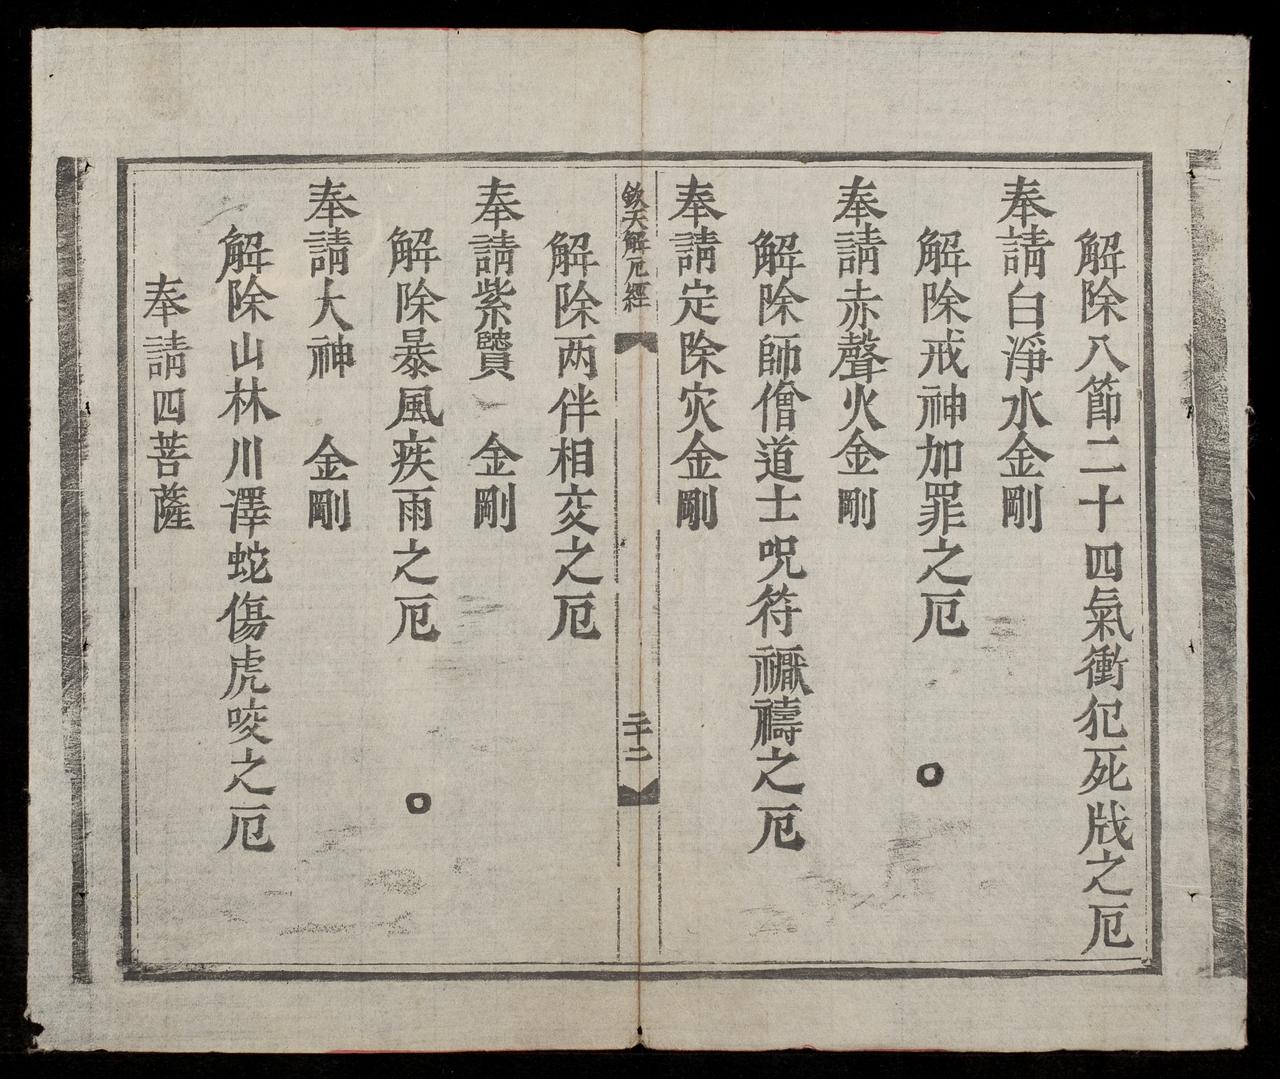 解除八節二十四氣衝犯死戕之厄
奉請白淨水金剛
解除戒神加罪之厄
奉請赤聲火金剛
解除師僧道士呪符禰禱之厄
奉請定除灾金剛
欽天解厄經
二十二
解除两伴相交之厄
奉請紫賢 金剛
解除暴風疾雨之厄
奉請大神 金剛
解除山林川澤蛇傷虎咬之厄
奉請四菩薩